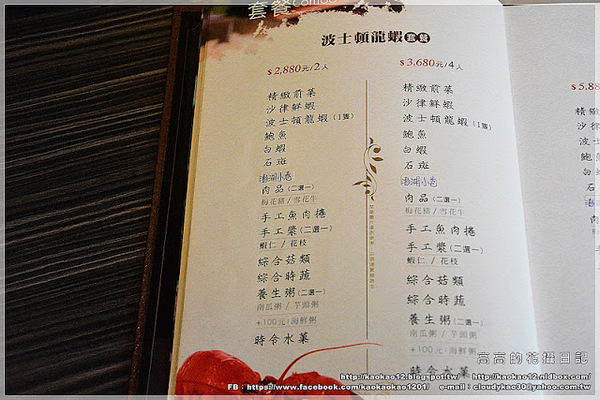 套餐 Combo
波士頓龍蝦 套餐
$2,880元/2人
精緻前菜
沙律鮮蝦
波士頓龍蝦(1隻)
鮑魚
白蝦
石斑
澎湖小卷
肉品(二選一)
梅花豬 / 雪花牛
手工魚肉捲
手工漿(二選一)
蝦仁 / 花枝
綜合菇類
綜合時蔬
養生粥(二選一)
南瓜粥 / 芋頭粥
+100元/海鮮粥
時令水菓
$3,680元/4人
精緻前菜
沙律鮮蝦
波士頓龍蝦(1隻)
鮑魚
白蝦
石斑
澎湖小卷
肉品(二選一)
梅花豬 / 雪花牛
手工魚肉捲
手工漿(二選一)
蝦仁 / 花枝
綜合菇類
綜合時蔬
養生粥(二選一)
南瓜粥 / 芋頭粥
+100元/海鮮粥
時令水菓
$5,88
精緻
沙律
波士
鮑魚
白蝦
石斑
澎湖
肉品
梅花
手工
手工
蝦仁
綜合
綜合
養生
南瓜
高高的花攝日記
http://kaokao12.blogspot.tw/ http://kaokao12.nidbox.com/
FB:https://www.facebook.com/kaokaokao1201/ e-mail:cloudykao30@yahoo.com.tw